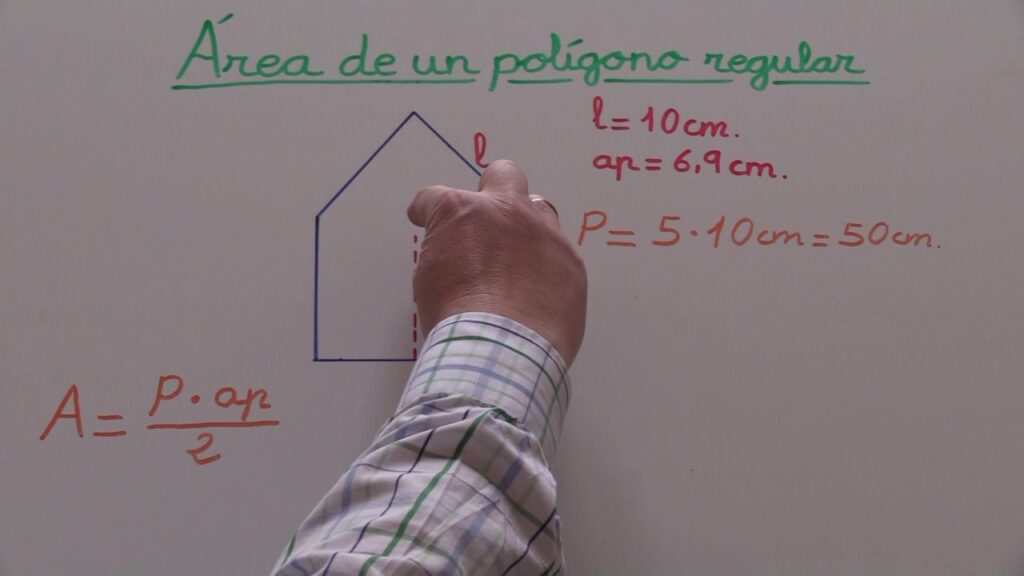 Área de un polígono regular
l
l = 10 cm.
ap = 6,9 cm.
P = 5 · 10 cm = 50 cm.
A = P · ap
2